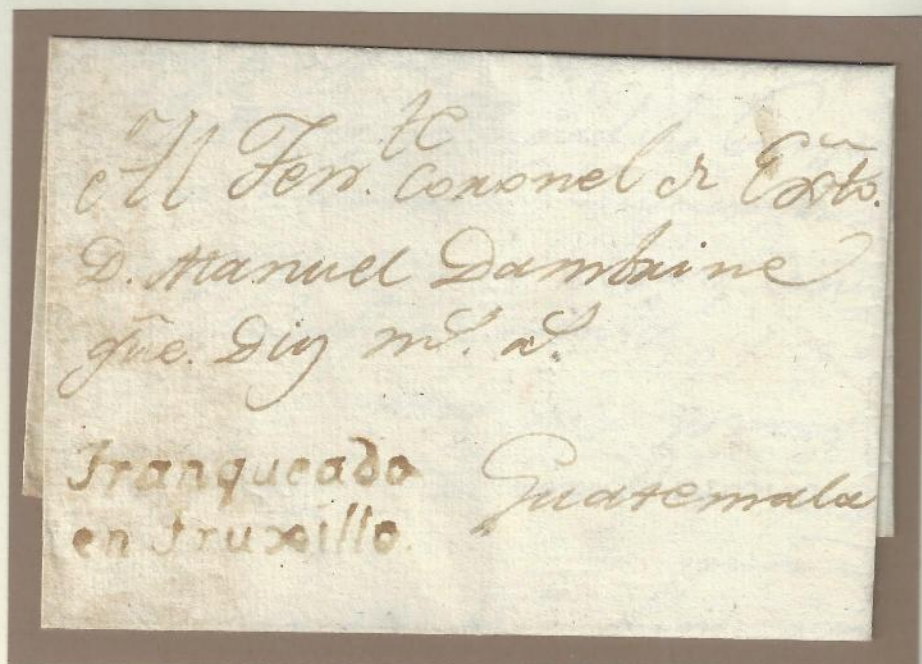 Al Ten.te Coronel de Exto.
D. Manuel Dambrine
gūe. Dios ms. as.
Franqueado
en truxillo.
Guatemala